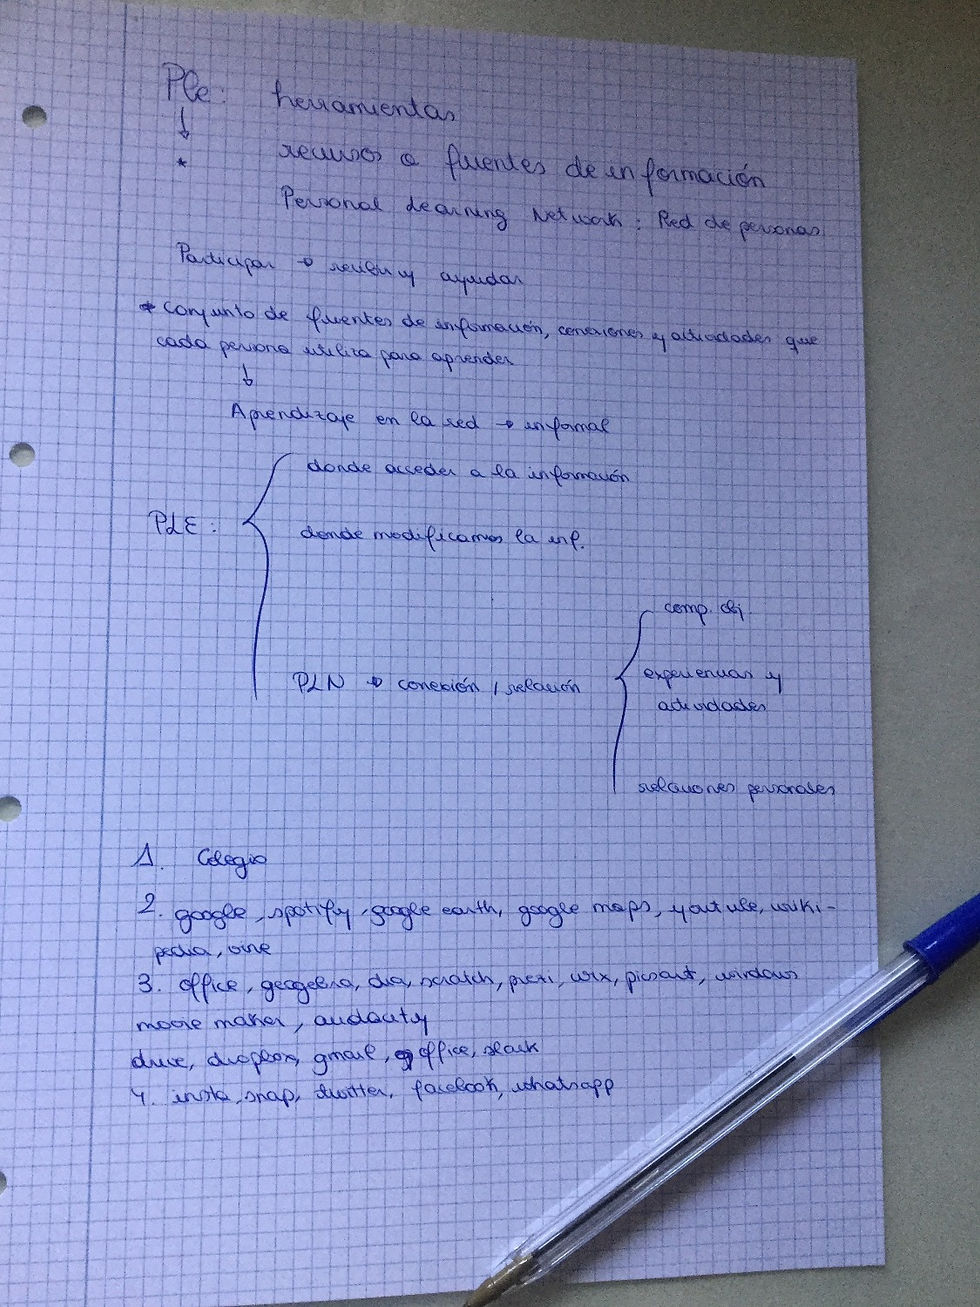 Ple: herramientas
↓
* recursos o fuentes de información
Personal Learning Network: Red de personas
Participar → recibir y ayudar
* conjunto de fuentes de información, conexiones y actividades que
cada persona utiliza para aprender
↓
Aprendizaje en la red → informal
donde acceder a la información
PLE:
donde modificamos la inf.
comp. obj
PLN → conexión / relación
experiencias y
actividades
relaciones personales
1. Colegio
2. google, spotify, google earth, google maps, youtube, wiki-
pedia,
3. office, geogebra, dia, scratch, prezi, wix, picsart, windows
movie maker, audacity
drive, dropbox, gmail, office, slack
4. insta, snap, twitter, facebook, whatsapp